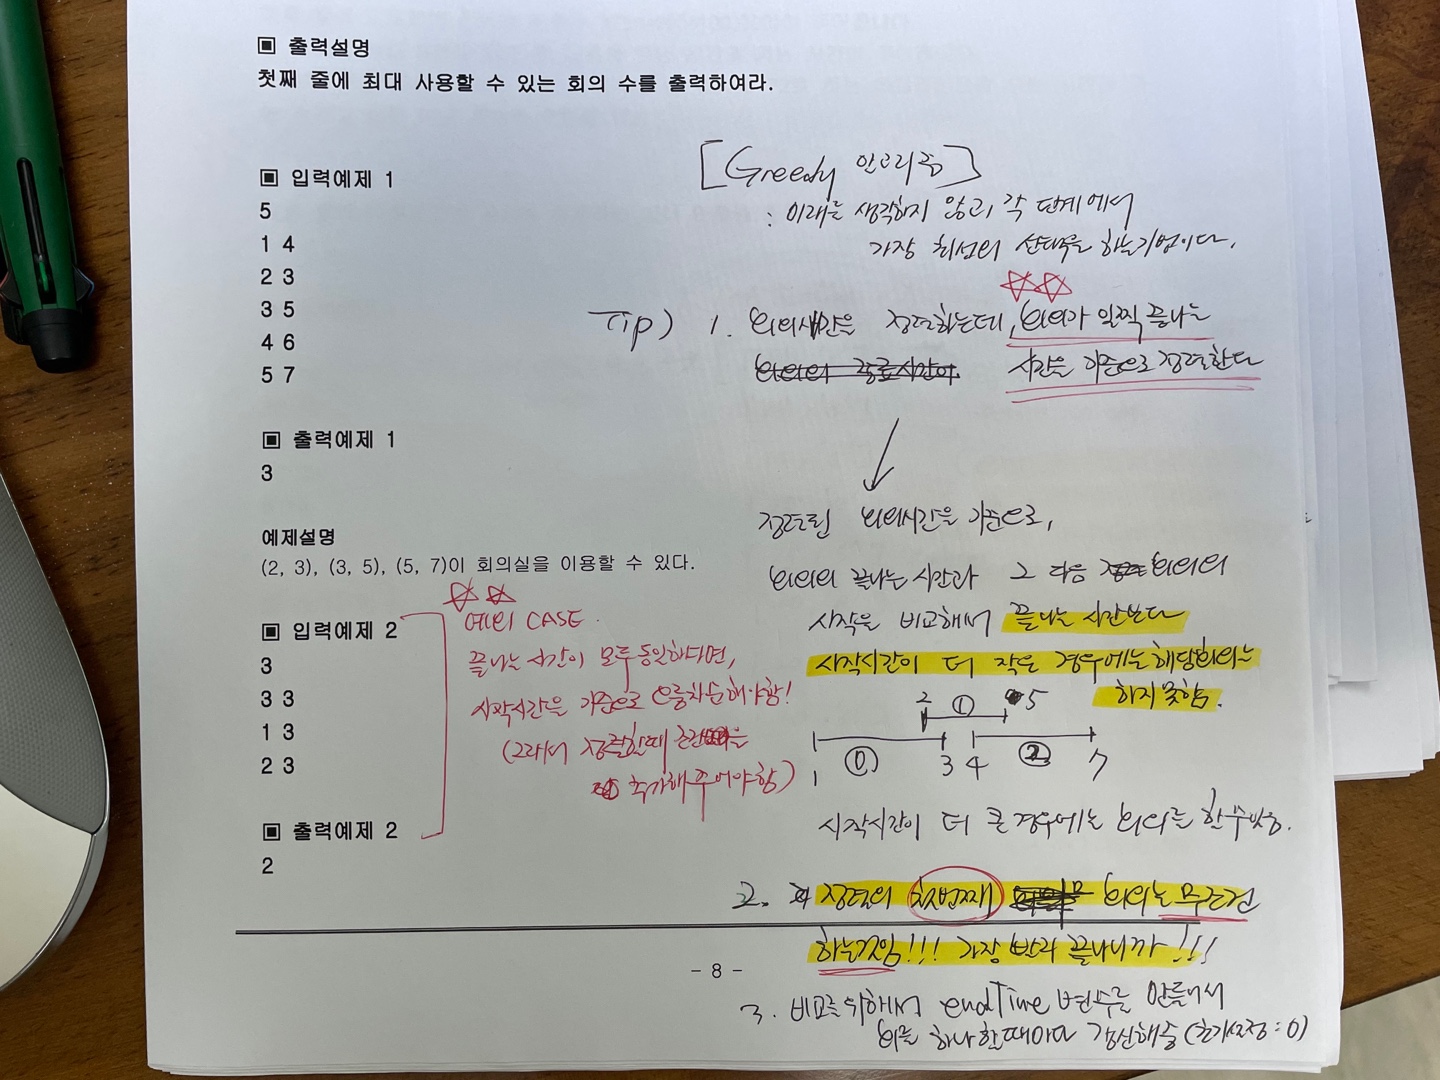 ▣ 출력설명
첫째 줄에 최대 사용할 수 있는 회의 수를 출력하여라.
▣ 입력예제 1
5
1 4
2 3
3 5
4 6
5 7
▣ 출력예제 1
3
예제설명
(2, 3), (3, 5), (5, 7)이 회의실을 이용할 수 있다.
▣ 입력예제 2
3
3 3
1 3
2 3
▣ 출력예제 2
2
예외 CASE.
끝나는 시간이 모두 동일하다면,
시작시간을 기준으로 오름차순해야함!
(그래서 정렬할때 조건을
추가해주어야함)
[Greedy 알고리즘]
: 미래를 생각하지 않고, 각 단계에서
가장 최선의 선택을 하는기법이다.
Tip) 1. 회의시간을 정렬하는데, 회의가 일찍 끝나는
시간을 기준으로 정렬한다
정렬된 회의시간을 기준으로,
회의의 끝나는 시간과 그 다음 회의의
시작을 비교해서 끝나는 시간보다
시작시간이 더 작은 경우에는 해당회의는
하지 못함.
2 ① 5
1 ⓪ 3 4 ② 7
시작시간이 더 큰 경우에는 회의를 할 수 있음.
2. 정렬의 첫번째 회의는 무조건
하는것임!!! 가장 빨리 끝나니까!!!
- 8 -
3. 비교를 위해서 endTime 변수를 만들어서
회의를 하나 할때마다 갱신해줌 (초기설정:0)